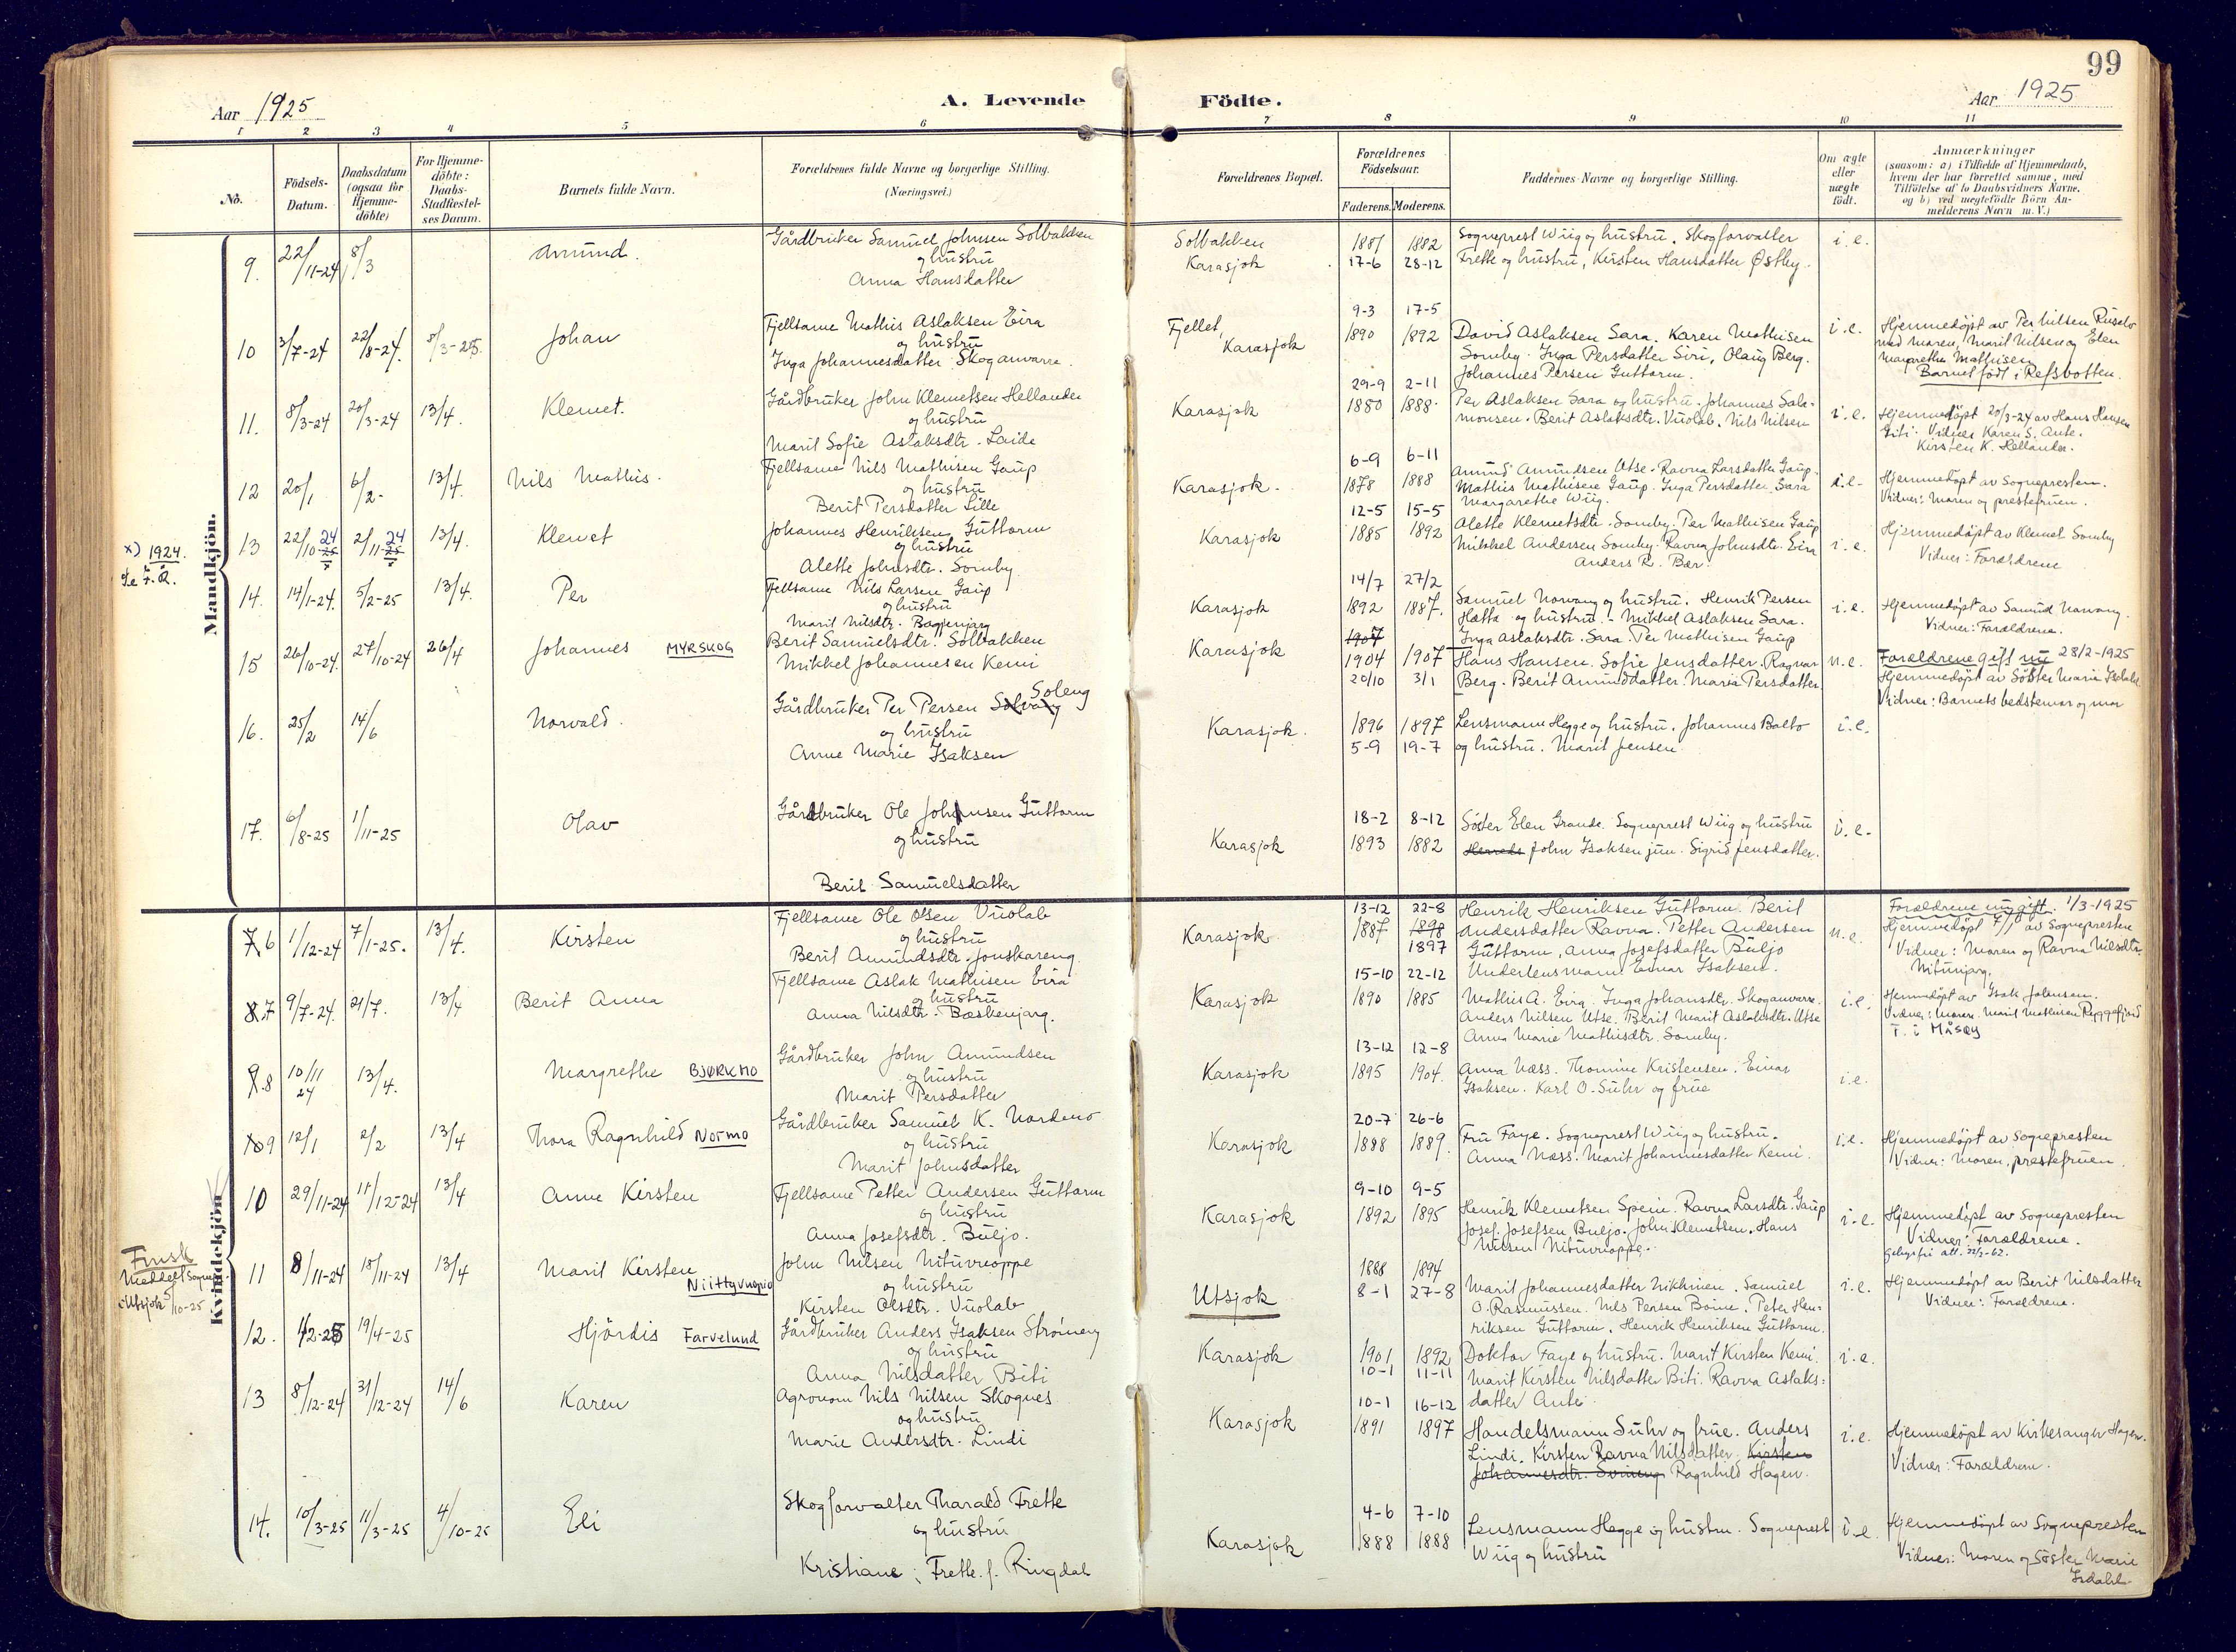 99
Aar 1925
A. Levende Födte.
Aar 1925
1 2 3 4 5 6 7 8 9 10 11
No.
Födsels-
Datum.
Daabsdatum
(ogsaa for
Hjemme-
döbte)
For Hjemme-
döbte:
Daabs-
Stadfæstel-
ses Datum.
Barnets fulde Navn.
Forældrenes fulde Navne og borgerlige Stilling.
(Næringsvei.)
Forældrenes Bopæl.
Forældrenes
Födselsaar.
Faderens. Moderens.
Faddernes Navne og borgerlige Stilling.
Om ægte
eller
uægte
födt.
Anmærkninger
(saasom: a) i Tilfælde af Hjemmedaab,
hvem der har forrettet samme, med
Tilföielse af to Daabsvidners Navne.
og b) ved uægtefödte Börn An-
melderens Navn m. V.)
Mandkjön.
9. 22/11-24 8/3 Amund.
Gårdbruker Samuel Johnsen Solbakken
og hustru
Anna Hansdatter
Solbakken
Karasjok
1881 1882
17-6 28-12
Sogneprest Wiig og hustru. Skogforvalter
Frette og hustru, Kirsten Hansdatter Østby.
i.e.
10 3/7-24 22/8-24. 8/3-25. Johan
Fjellsame Mathis Aslaksen Eira
og hustru
Inga Johannesdatter Skoganvarre.
Fjellet,
Karasjok
9-3 17-5
1890 1892
David Aslaksen Sara. Karen Mathisen
Somby. Inga Persdatter Siri, Olaug Berg.
Johannes Persen Guttorm.
i.e.
Hjemmedøpt av Per Nilsen
med moren, Marit Nilsen og Elen
Margrethe Mathisen
Barnet født i Refsbotten.
11. 8/3-24 20/3-24 13/4. Klemet.
Gårdbruker John Klemetsen Hellander
og hustru
Marit Sofie Aslaksdtr. Laide
Karasjok
29-9 2-11
1880 1888
Per Aslaksen Sara og hustru. Johannes Salo-
monsen. Berit Aslaksdtr. Vuolab. Nils Nilsen
i.e.
Hjemmedøpt 20/3-24 av Hans Hansen
Biti. Vidner Karen S. Ante.
Kirsten K. Hellander.
12 20/1 6/2- 13/4. Nils Mathis.
Fjellsame Nils Mathisen Gaup
og hustru
Berit Persdatter Lille
Karasjok.
6-9 6-11
1878 1888
Amund Amundsen Utse. Ravna Larsdatter Gaup.
Mathis Mathisen Gaup. Inga Persdatter Sara
Margarethe Wiig.
i.e.
Hjemmedøpt av Sognepresten.
Vidner: Moren og prestefruen.
x) 1924.
13 22/10 24 2/11-24 13/4. Klemet
Johannes Henriksen Guttorm
og hustru
Alette Johnsdtr. Somby.
Karasjok
12-5 15-5
1885 1892
Alette Klemetsdtr. Somby. Per Mathisen Gaup
Mikkel Andersen Somby. Ravna Johnsdtr. Eira
Anders R. Bær.
i.e.
Hjemmedøpt av Klemet Somby
Vidner: Forældrene
14. 14/1-24. 5/2-25 13/4. Per
Fjellsame Nils Larsen Gaup
og hustru
Marit Nilsdtr. Bagjenjarg
Karasjok
14/7 27/2
1892 1887.
Samuel Norvang og hustru. Henrik Persen
Hætta og hustru. Mikkel Aslaksen Sara.
Inga Aslaksdtr. Sara. Per Mathisen Gaup
i.e.
Hjemmedøpt av Samuel Norvang.
Vidner: Forældrene.
15 26/10-24. 27/10-24 26/4 Johannes MYRSKOG
Berit Samuelsdtr. Solbakken
Mikkel Johannesen Kemi
Karasjok
1907
1904 1907
20/10 3/1
Hans Hansen. Sofie Jensdatter. Ragnar
Berg. Berit Amunddatter. Maria Persdatter.
u.e.
Forældrene gift nu 28/2-1925
Hjemmedøpt av Søster Marie Isdahl.
Vidner: Barnets bedstemor og mor
16. 25/2 14/6 Norvald.
Gårdbruker Per Persen Solvang Soleng
og hustru
Anne Marie Isaksen
Karasjok.
1896 1897
5-9 19-7
Lensmann Hegge og hustru. Johannes Balto
og hustru. Marit Jensen.
i.e.
17. 6/8-25 1/11-25 Olav
Gårdbruker Ole Johnsen Guttorm
og hustru
Berit Samuelsdatter
Karasjok
18-2 8-12
1893 1882
Søster Elen Grande. Sogneprest Wiig og hustru
John Isaksen jun. Sigrid Jensdatter.
i.e.
Kvindekjön
6 1/12-24 7/1-25. 13/4. Kirsten
Fjellsame Ole Olsen Vuolab
og hustru
Berit Amundsdtr. Jonskareng.
Karasjok
13-12 22-8
1887 1898
1897
Henrik Henriksen Guttorm. Berit
Andersdatter Ravna. Petter Andersen
Guttorm, Anna Josefsdatter Buljo
u.e.
Forældrene nu gift. 1/3-1925
Hjemmedøpt 7/1 av Sognepresten
Vidner: Moren og Ravna Nilsdtr.
Nitunjarg.
7 9/7-24. 21/7. 13/4 Berit Anna
Fjellsame Aslak Mathisen Eira
og hustru
Anna Nilsdtr. Bæskenjarg.
Karasjok
15-10 22-12
1890 1885
Underlensmann Einar Isaksen.
Mathis A. Eira. Inga Johansdtr. Skoganvarre.
Anders Nilsen Utse. Berit Marit Aslaksdtr. Utse
Anna Marie Mathisdtr. Somby.
i.e.
Hjemmedøpt av Isak Johnsen.
Vidner: Moren. Marit Mathisen Ryggefjord
F. i MÅSØY
8 10/11 24 13/4. Margrethe BJØRKMO
Gårdbruker John Amundsen
og hustru
Marit Persdatter
Karasjok
13-12 12-8
1895 1904.
Anna Næss. Thomine Kristensen. Einar
Isaksen. Karl O. Suhr og frue
i.e.
9 12/1 2/2 13/4 Thora Ragnhild Normo
Gårdbruker Samuel K. Nordmo
og hustru
Marit Johnsdatter
Karasjok
20-7 26-6
1888 1889.
Fru Faye. Sogneprest Wiig og hustru.
Anna Næss. Marit Johannesdatter Kemi.
i.e.
Hjemmedøpt av Sognepresten
Vidner: Moren, prestefruen.
10 29/11-24 11/12-24 13/4 Anne Kirsten
Fjellsame Petter Andersen Guttorm
og hustru
Anna Josefsdtr. Buljo.
Karasjok
9-10 9-5
1892 1895
Henrik Klemetsen Speine. Ravna Larsdtr. Gaup
Josef Josefsen Buljo. John Klemetsen. Hans
Nilsen Nituvuoppe.
i.e.
Hjemmedøpt av Sognepresten
Vidner: Forældrene.
Gebyrfri att. 22/3-62.
Finsk
Meddelt Sognepr.
i Utsjok 5/10-25
11 8/11-24 18/11-24 13/4 Marit Kirsten
Niittyvuopio
John Nilsen Nituvuoppe
og hustru
Kirsten Olsdtr. Vuolab
Utsjok
1888 1894
8-1 27-8
Marit Johannesdatter Nikkinen. Samuel
O. Rasmussen. Nils Persen Boine. Peter Hen-
riksen Guttorm. Henrik Henriksen Guttorm.
i.e.
Hjemmedøpt av Berit Nilsdatter
Vidner: Forældrene.
12. 1/2-25 19/4-25 Hjördis Farvelund
Gårdbruker Anders Isaksen Strømeng
og hustru
Anna Nilsdatter Biti
Karasjok
1901 1892
10-1 11-11
Doktor Faye og hustru. Marit Kirsten Kemi.
Marit Kirsten Nilsdatter Biti. Ravna Aslaks-
datter Ante.
i.e.
13 8/12-24 31/12-24 14/6 Karen
Agronom Nils Nilsen Skognes
og hustru
Marie Andersdtr. Lindi
Karasjok
10-1 16-12
1891 1897
Handelsmann Suhr og frue. Anders
Lindi. Kirsten Ravna Nilsdatter. Kirsten
Johannesdtr. Ragnhild Hagen.
i.e.
Hjemmedøpt av Kirkesanger Hagen.
Vidner: Forældrene.
14. 10/3-25 11/3-25 4/10-25 Eli
Skogforvalter Tharald Frette
og hustru
Kristiane Frette f. Ringdal
Karasjok
4-6 7-10
1888 1888
Lensmann Hegge og hustru. Sogneprest
Wiig og hustru
i.e.
Hjemmedøpt av Sognepresten
Vidner: Moren og Søster Marie
Isdahl.